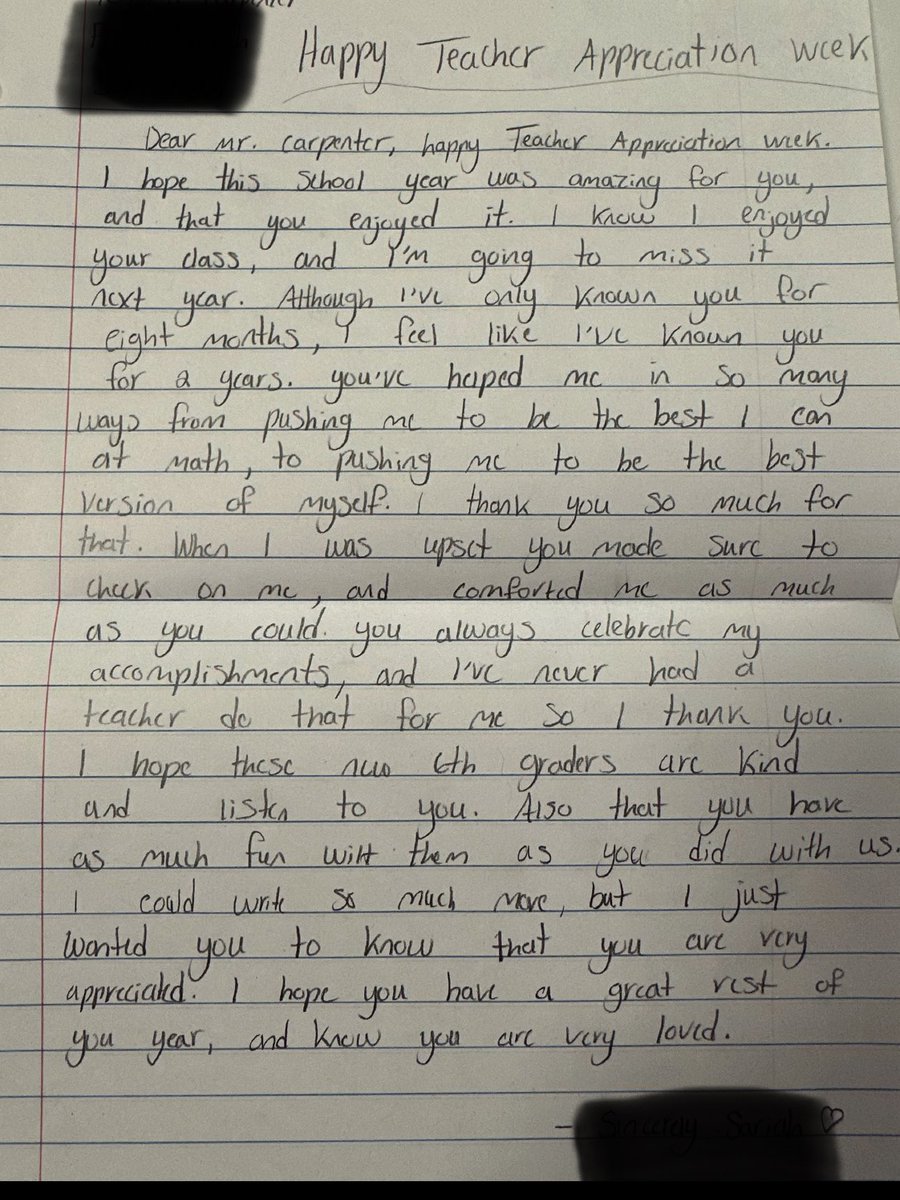 Happy Teacher Appreciation week
Dear Mr. Carpenter, happy Teacher Appreciation week.
I hope this School year was amazing for you,
and that you enjoyed it. I know I enjoyed
your class, and I'm going to miss it
next year. Although I've only known you for
eight months, I feel like I've known you
for 2 years. you've helped me in so many
ways from pushing me to be the best I can
at math, to pushing me to be the best
version of myself. I thank you so much for
that. When I was upset you made sure to
check on me, and comforted me as much
as you could. you always celebrate my
accomplishments, and I've never had a
teacher do that for me so I thank you.
I hope these new 6th graders are kind
and listen to you. Also that you have
as much fun with them as you did with us.
I could write so much more, but I just
wanted you to know that you are very
appreciated. I hope you have a great rest of
you year, and know you are very loved.